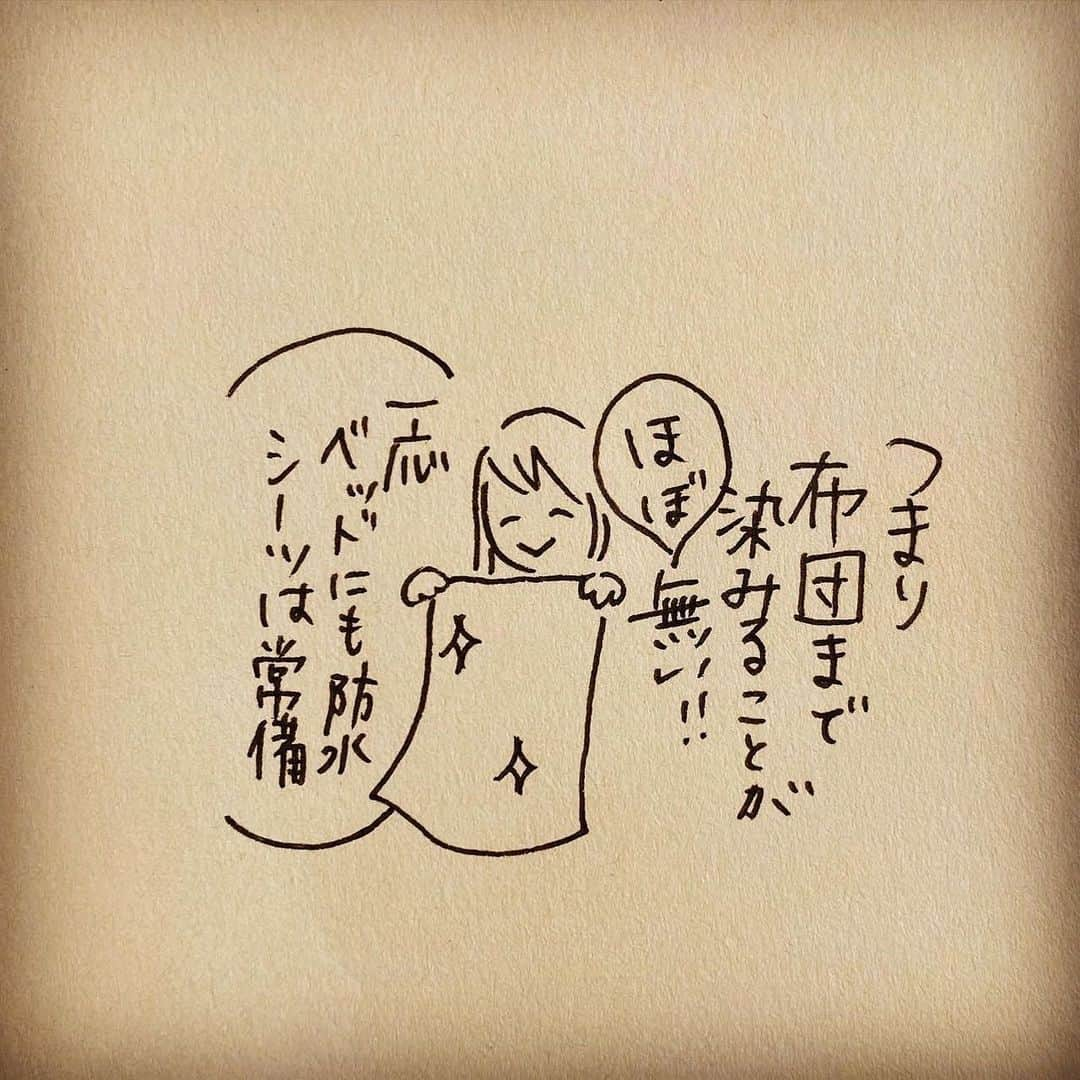 つまり
布団まで
染みることが
ほぼ
無い!!
一応
ベッドにも防水
シーツは常備